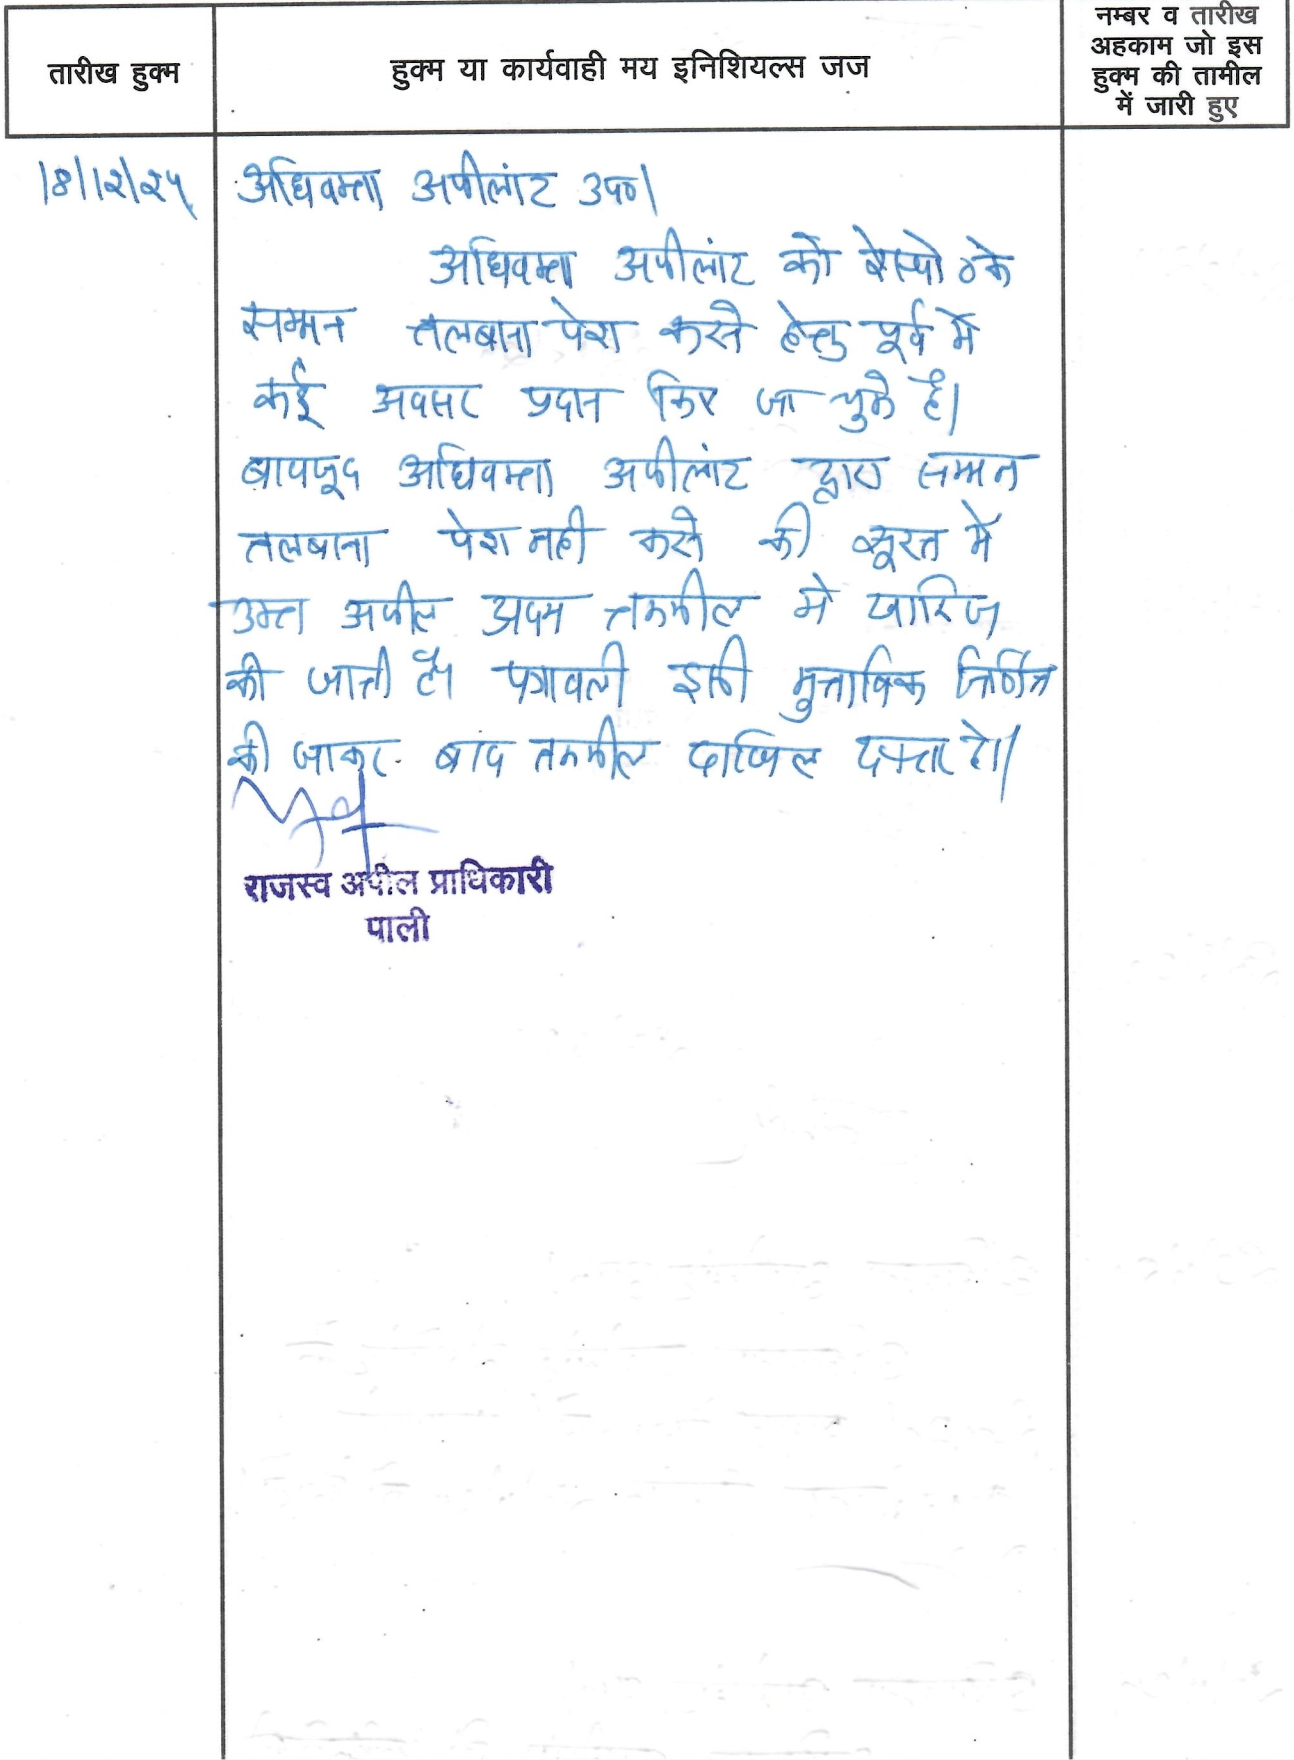 तारीख हुक्म
हुक्म या कार्यवाही मय इनिशियल्स जज
नम्बर व तारीख
अहकाम जो इस
हुक्म की तामील
में जारी हुए
18/12/25
अधिवक्ता अपीलांट उप०।
अधिवक्ता अपीलांट को रेस्पो०के
सम्मन तलबाना पेश करने हेतु पूर्व में
कई अवसर प्रदान किए जा चुके हैं।
बावजूद अधिवक्ता अपीलांट द्वारा सम्मन
तलबाना पेश नही करने की सूरत में
उक्त अपील अदम तकमील में खारिज
की जाती है। पत्रावली इसी मुताबिक निर्णित
की जाकर बाद तकमील दाखिल दफ्तर हो।
राजस्व अपील प्राधिकारी
पाली